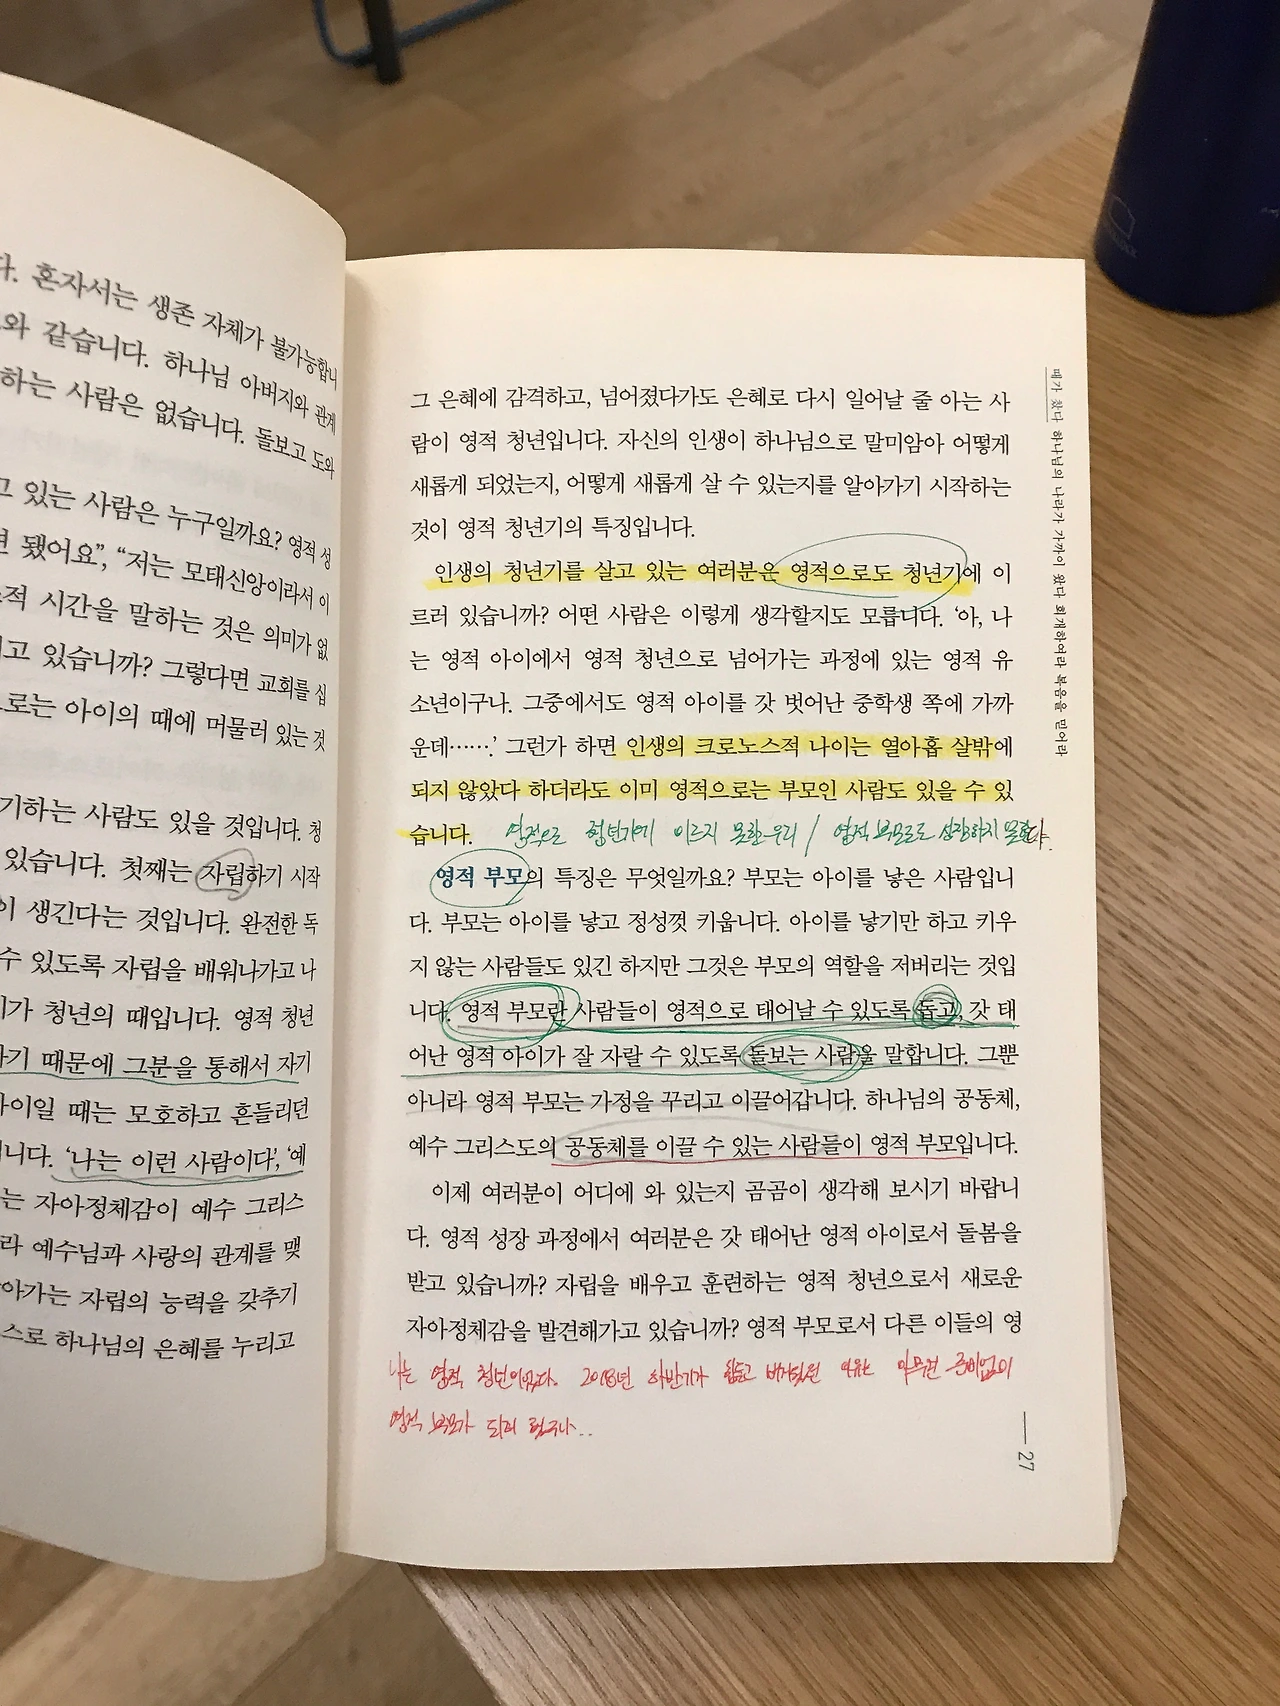 다. 혼자서는 생존 자체가 불가능합니
와 같습니다. 하나님 아버지와 관계
하는 사람은 없습니다. 돌보고 도와
고 있는 사람은 누구일까요? 영적 성
면 됐어요”, “저는 모태신앙이라서 이
적 시간을 말하는 것은 의미가 없
고 있습니까? 그렇다면 교회를 십
로는 아이의 때에 머물러 있는 것
기하는 사람도 있을 것입니다. 청
있습니다. 첫째는 자립하기 시작
이 생긴다는 것입니다. 완전한 독
수 있도록 자립을 배워나가고 나
가 청년의 때입니다. 영적 청년
기 때문에 그분을 통해서 자기
아이일 때는 모호하고 흔들리던
니다. ‘나는 이런 사람이다’, ‘예
는 자아정체감이 예수 그리스
라 예수님과 사랑의 관계를 맺
아가는 자립의 능력을 갖추기
스로 하나님의 은혜를 누리고
그 은혜에 감격하고, 넘어졌다가도 은혜로 다시 일어날 줄 아는 사
람이 영적 청년입니다. 자신의 인생이 하나님으로 말미암아 어떻게
새롭게 되었는지, 어떻게 새롭게 살 수 있는지를 알아가기 시작하는
것이 영적 청년기의 특징입니다.
인생의 청년기를 살고 있는 여러분은 영적으로도 청년기에 이
르러 있습니까? 어떤 사람은 이렇게 생각할지도 모릅니다. ‘아, 나
는 영적 아이에서 영적 청년으로 넘어가는 과정에 있는 영적 유
소년이구나. 그중에서도 영적 아이를 갓 벗어난 중학생 쪽에 가까
운데…….’ 그런가 하면 인생의 크로노스적 나이는 열아홉 살밖에
되지 않았다 하더라도 이미 영적으로는 부모인 사람도 있을 수 있
습니다. 영적으로 청년기에 이르지 못한 우리 / 영적 부모로도 성장하지 못했다.
영적 부모의 특징은 무엇일까요? 부모는 아이를 낳은 사람입니
다. 부모는 아이를 낳고 정성껏 키웁니다. 아이를 낳기만 하고 키우
지 않는 사람들도 있긴 하지만 그것은 부모의 역할을 저버리는 것입
니다. 영적 부모란 사람들이 영적으로 태어날 수 있도록 돕고, 갓 태
어난 영적 아이가 잘 자랄 수 있도록 돌보는 사람을 말합니다. 그뿐
아니라 영적 부모는 가정을 꾸리고 이끌어갑니다. 하나님의 공동체,
예수 그리스도의 공동체를 이끌 수 있는 사람들이 영적 부모입니다.
이제 여러분이 어디에 와 있는지 곰곰이 생각해 보시기 바랍니
다. 영적 성장 과정에서 여러분은 갓 태어난 영적 아이로서 돌봄을
받고 있습니까? 자립을 배우고 훈련하는 영적 청년으로서 새로운
자아정체감을 발견해가고 있습니까? 영적 부모로서 다른 이들의 영
나는 영적 청년이었다. 2018년 하반기가 힘들고 버거웠던 이유는 아무런 준비없이
영적 부모가 되려 했구나..
때가 찼다 하나님의 나라가 가까이 왔다 회개하여라 복음을 믿어라
27